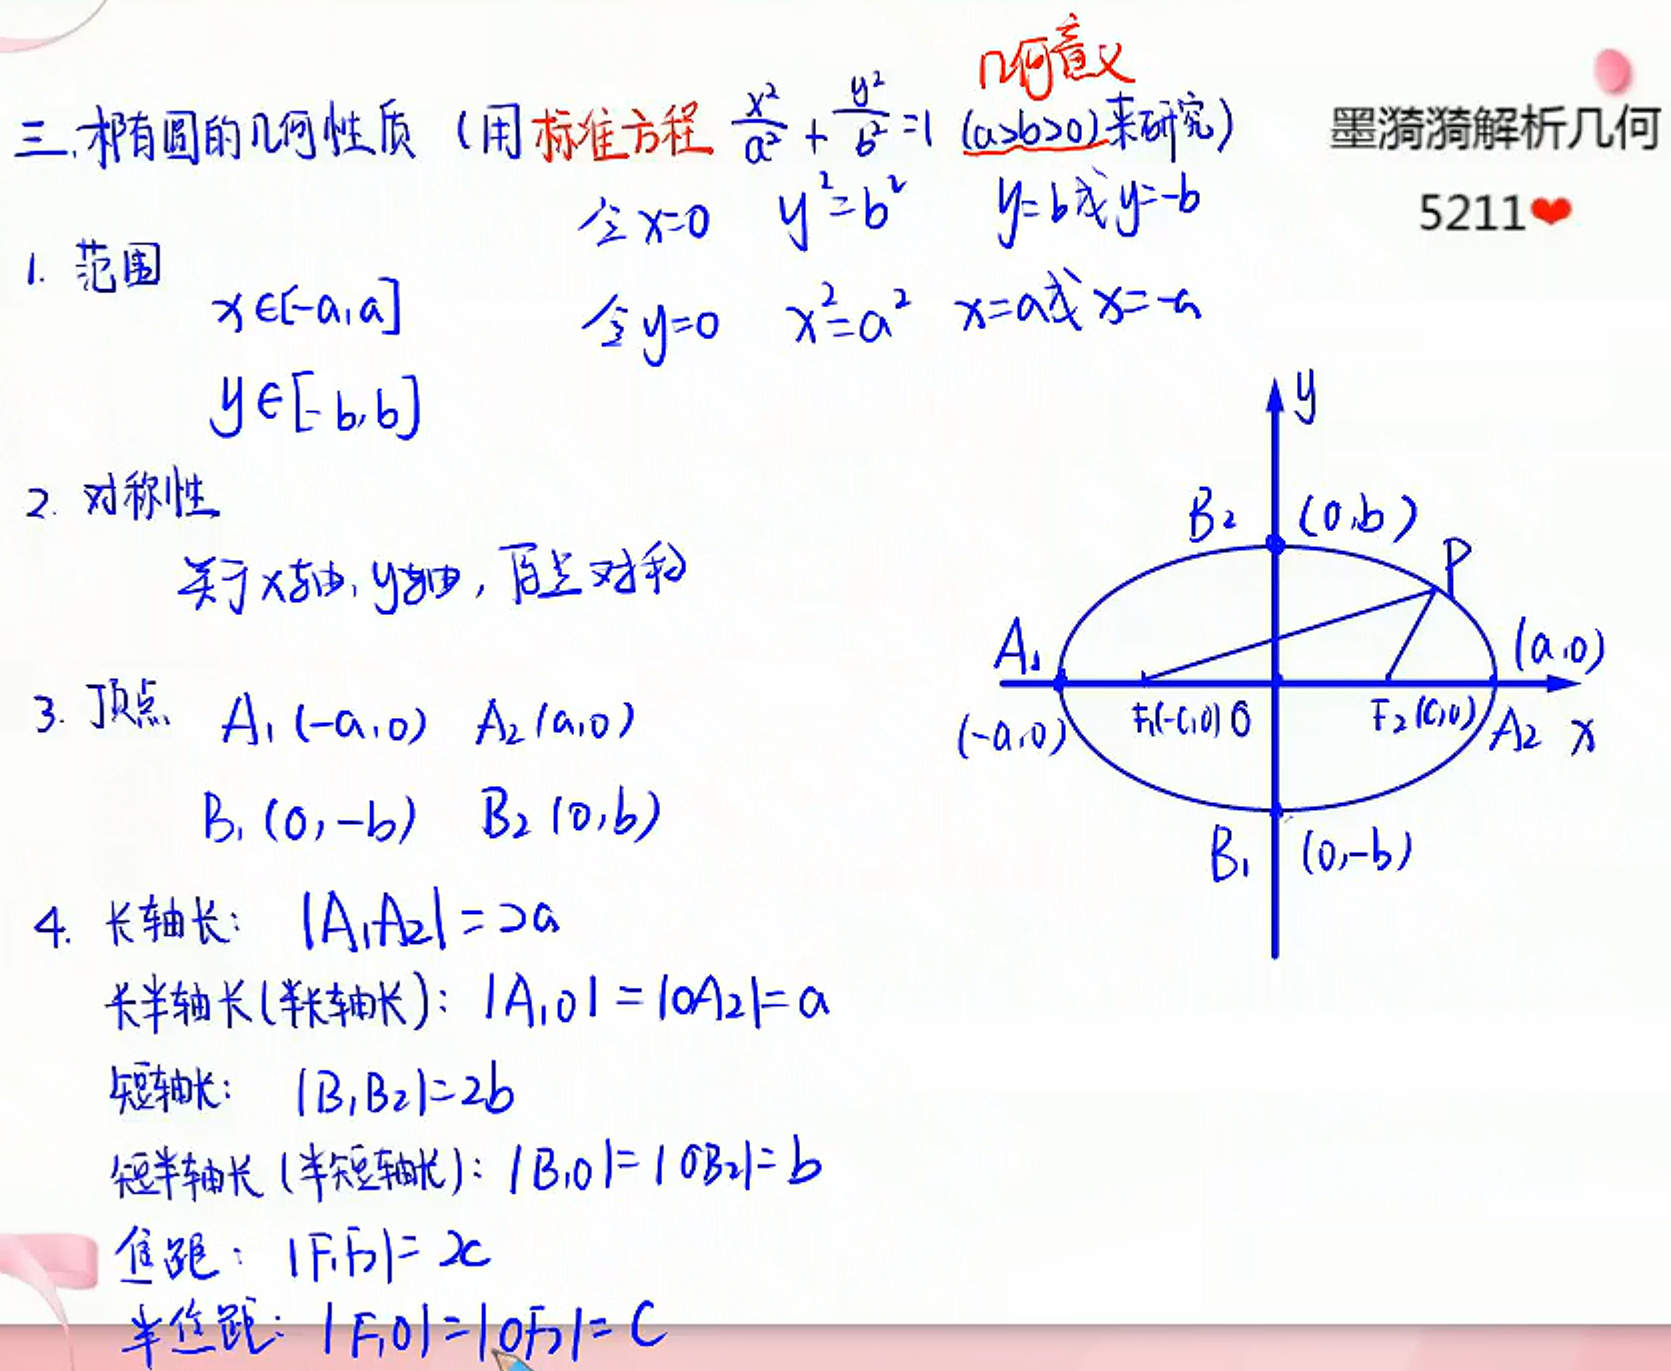 几何意义
三.椭圆的几何性质 (用标准方程 x²/a² + y²/b² =1 (a>b>0)来研究)
墨漪漪解析几何
5211❤
令x=0 y²=b² y=b或y=-b
1. 范围
x∈[-a,a]
令y=0 x²=a² x=a或x=-a
y∈[-b,b]
2. 对称性
关于x轴,y轴,原点对称
3. 顶点 A₁(-a,0) A₂(a,0)
B₁(0,-b) B₂(0,b)
4. 长轴长: |A₁A₂|=2a
长半轴长(半长轴长): |A₁O|=|OA₂|=a
短轴长: |B₁B₂|=2b
短半轴长(半短轴长): |B₁O|=|OB₂|=b
焦距: |F₁F₂|=2c
半焦距: |F₁O|=|OF₂|=C
y
B₂ (0,b)
P
A₁ (a,0)
(-a,0) F₁(-c,0) O F₂(c,0) A₂ x
B₁ (0,-b)